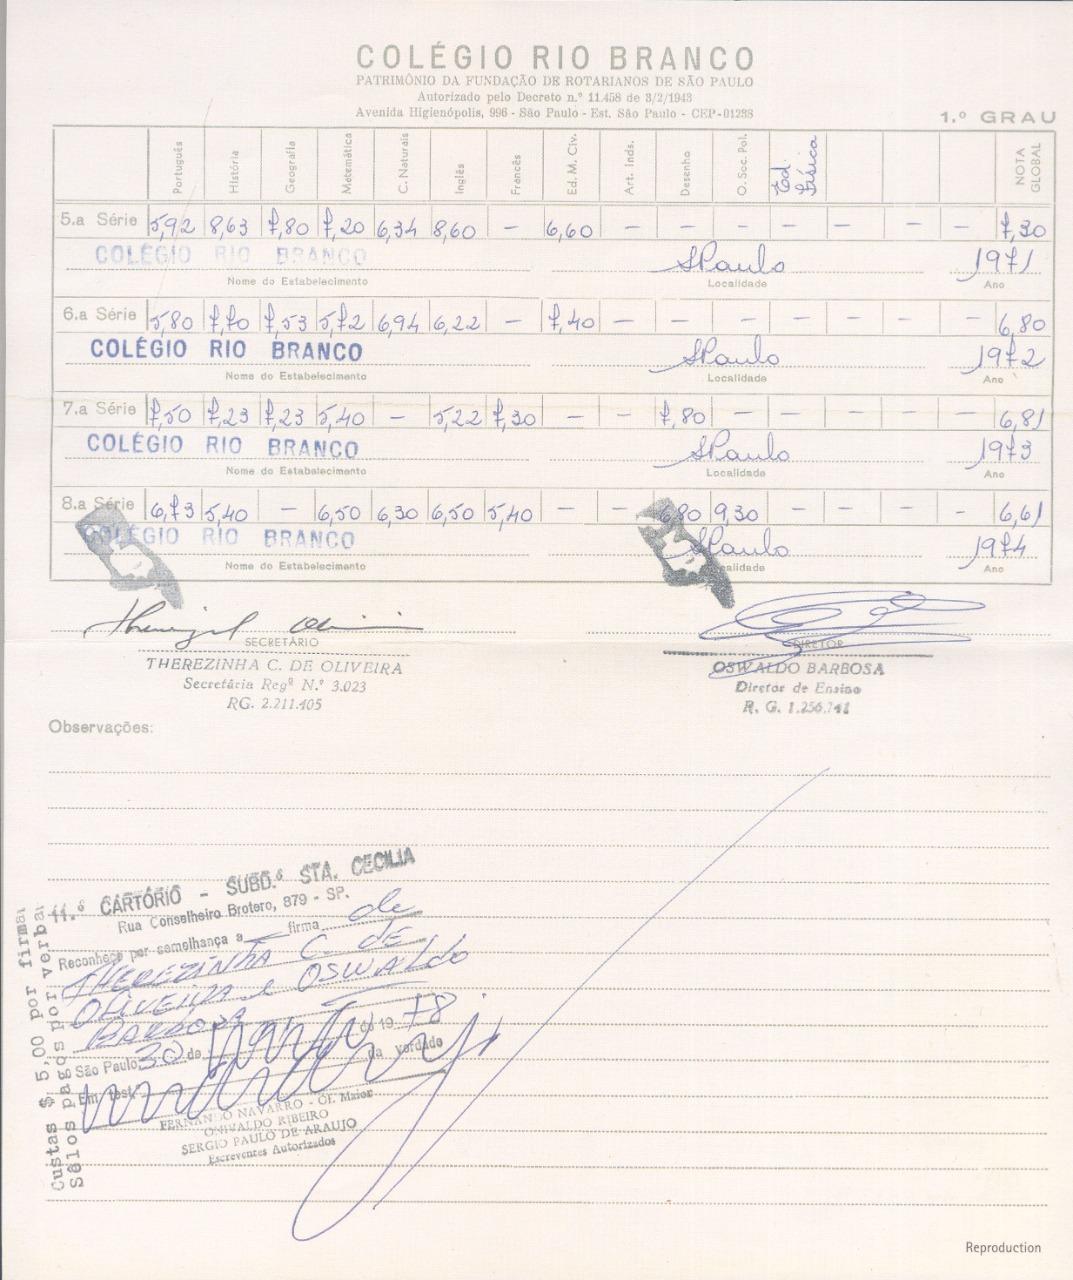 COLÉGIO RIO BRANCO
PATRIMÔNIO DA FUNDAÇÃO DE ROTARIANOS DE SÃO PAULO
Autorizado pelo Decreto n.º 11.458 de 3/2/1943
Avenida Higienópolis, 996 - São Paulo - Est. São Paulo - CEP-01238
1.º GRAU
Português História Geografia Matemática C. Naturais Inglês Francês Ed. M. Civ. Art. Inds. Desenho O. Soc. Pol. Ed. Física NOTA GLOBAL
5.a Série 5,92 8,63 7,80 7,20 6,34 8,60 - 6,60 - - - - - - - 7,30
COLÉGIO RIO BRANCO SPaulo 1971
Nome do Estabelecimento Localidade Ano
6.a Série 5,80 7,70 7,53 5,72 6,94 6,22 - 7,40 - - - - - - - 6,80
COLÉGIO RIO BRANCO SPaulo 1972
Nome do Estabelecimento Localidade Ano
7.a Série 7,50 7,23 7,23 5,40 - 5,22 7,30 - - 7,80 - - - - - 6,81
COLÉGIO RIO BRANCO SPaulo 1973
Nome do Estabelecimento Localidade Ano
8.a Série 6,73 5,40 - 6,50 6,30 6,50 5,40 - - 6,80 9,30 - - - - 6,61
COLÉGIO RIO BRANCO SPaulo 1974
Nome do Estabelecimento Localidade Ano
SECRETÁRIO DIRETOR
THEREZINHA C. DE OLIVEIRA OSWALDO BARBOSA
Secretária Regº N.º 3.023 Diretor de Ensino
RG. 2.211.405 R. G. 1.256.741
Observações:
11.º CARTÓRIO - SUBD.º STA. CECILIA
Rua Conselheiro Brotero, 879 - SP.
Reconheço por semelhança a firma de
THEREZINHA C. DE
OLIVEIRA e OSWALDO
BARBOSA
São Paulo, 30 de de 19 78
Em test.º da verdade
FERNANDO NAVARRO - Of. Maior
ONIVALDO RIBEIRO
SERGIO PAULO DE ARAUJO
Escreventes Autorizados
Custas $ 5,00 por firma
Sêlos pagos por verba
Reproduction